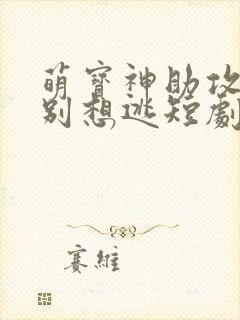 萌寶神助攻
別想逃短劇
賽維